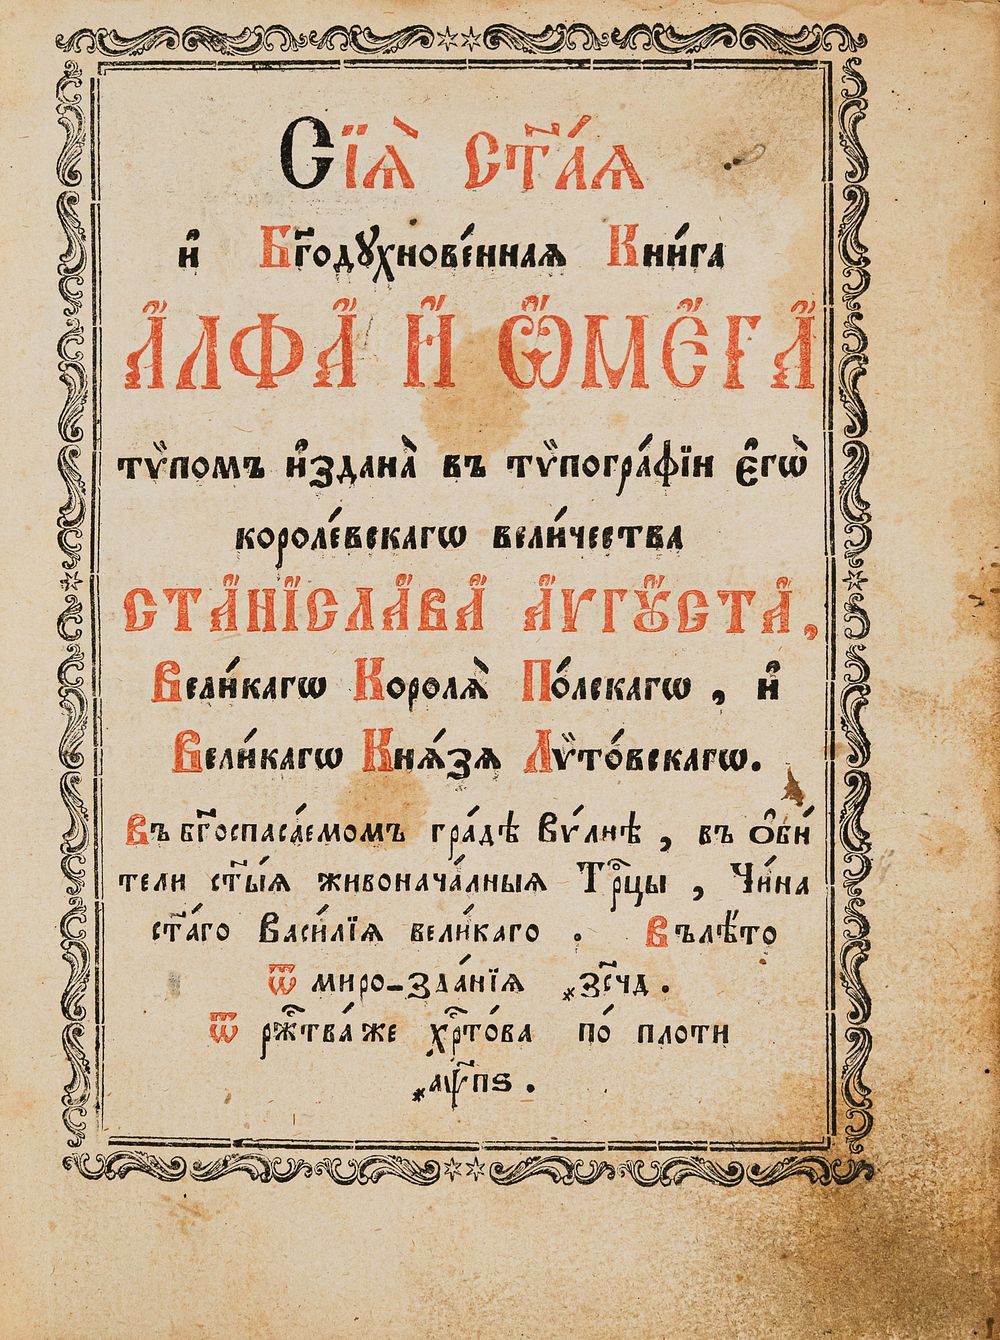 Сїѧ̀ ст҃а́ѧ
и҆ Бг҃одꙋхнове́ннаѧ Кни́га
А҆́ЛФА҆̀ И҆́ Ѽ҆МЕ҆́ГА҆̀
тѵ́помъ и҆зданⷶ҇ въ тѵпогра́фїи є҆гѡ̀
короле́вскагѡ вели́чества
СТА́НІСЛА́ВА А҆́ѴГꙊСТА,
Вели́кагѡ Королѧ̀ По́лскагѡ, и҆
Вели́кагѡ Кнѧ́зѧ Лѵто́вскагѡ.
Въ бг҃оспаса́емомъ гра́дѣ Ви́лнѣ, въ ѻ҆би́
тели ст҃ы́ѧ живонача́лныѧ Трⷪ҇цы, Чи́на
ст҃а́го Васи́лїѧ вели́каго. Въ лѣ́то
ѿ миро-зда́нїѧ ҂зс҃чд.
ѿ рж҃тва́ же хрⷭ҇то́ва по́ плоти
҂аѱ҃пѕ.